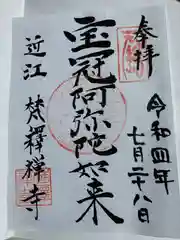 奉拝
令和四年
七月二十八日
宝冠阿弥陀如来
近江
梵釋寺